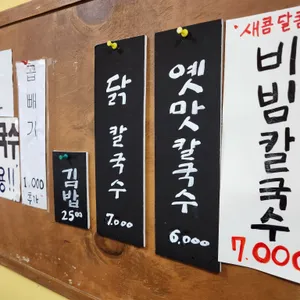 국수
용!!
곱빼기
1,000
추가
김밥
2500
닭 칼국수
7.000
옛맛칼국수
6.000
새콤달콤
비빔칼국수
7.000